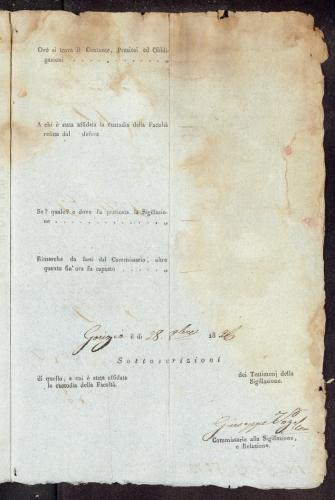 Ove si trova il Contante, Preziosi ed Obbli-
gazioni . . . . . . . . .
A chi è stata affidata la custodia della Facoltà
relitta dal defonto
Se? quale? e dove fu praticata la Sigillazio-
ne . . . . . . . . . .
Rimarche da farsi dal Commissario, oltre
quanto fin' ora fu esposto . . . . .
li 28. 18
Sottoscrizioni
di quello, a cui è stata affidata
la custodia della Facoltà.
dei Testimonj della
Sigillazione.
Giuseppe
Commissario alla Sigillazione,
e Relazione.